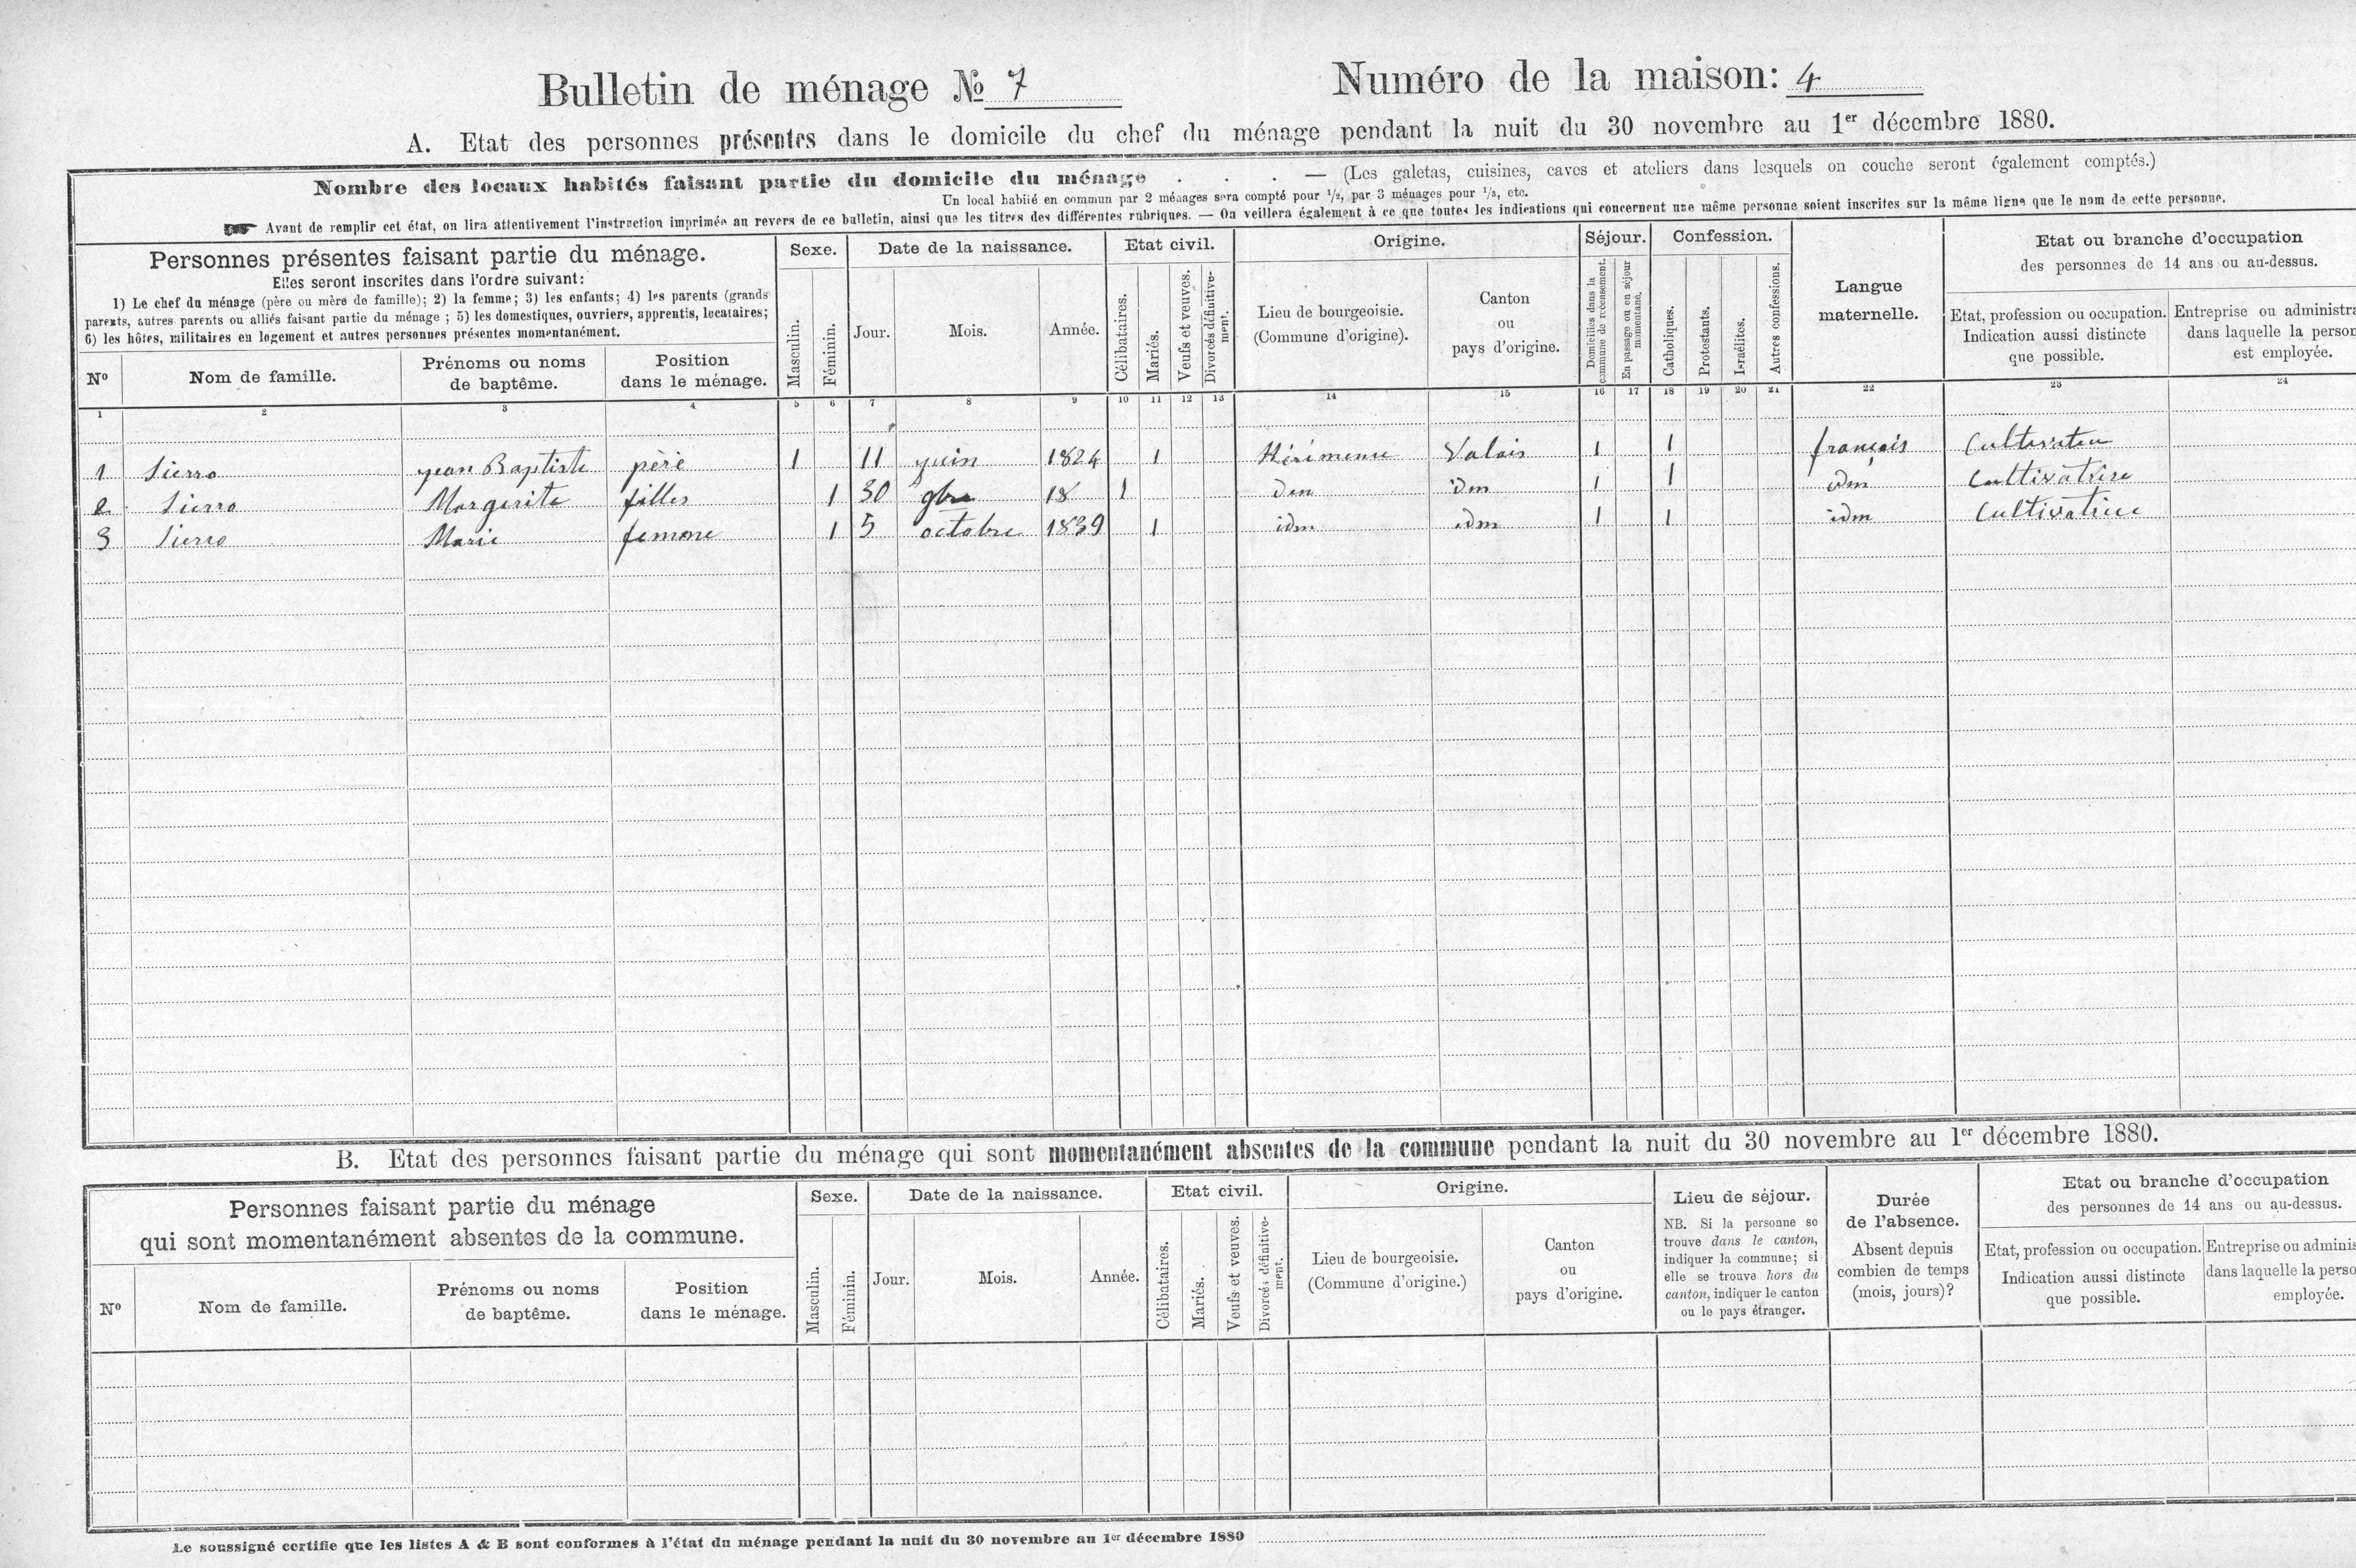 Bulletin de ménage № 7
Numéro de la maison: 4
A. Etat des personnes présentes dans le domicile du chef du ménage pendant la nuit du 30 novembre au 1er décembre 1880.
Nombre des locaux habités faisant partie du domicile du ménage . . . — (Les galetas, cuisines, caves et ateliers dans lesquels on couche seront également comptés.)
Un local habité en commun par 2 ménages sera compté pour 1/2, par 3 ménages pour 1/3, etc.
☛ Avant de remplir cet état, on lira attentivement l'instruction imprimée au revers de ce bulletin, ainsi que les titres des différentes rubriques. — On veillera également à ce que toutes les indications qui concernent une même personne soient inscrites sur la même ligne que le nom de cette personne.
Personnes présentes faisant partie du ménage.
Elles seront inscrites dans l'ordre suivant:
1) Le chef du ménage (père ou mère de famille); 2) la femme; 3) les enfants; 4) les parents (grands
parents, autres parents ou alliés faisant partie du ménage ; 5) les domestiques, ouvriers, apprentis, locataires;
6) les hôtes, militaires en logement et autres personnes présentes momentanément.
Nº
Nom de famille.
Prénoms ou noms
de baptême.
Position
dans le ménage.
Sexe.
Masculin.
Féminin.
Date de la naissance.
Jour.
Mois.
Année.
Etat civil.
Célibataires.
Mariés.
Veufs et veuves.
Divorcés définitive-
ment.
Origine.
Lieu de bourgeoisie.
(Commune d'origine).
Canton
ou
pays d'origine.
Séjour.
Domiciliés dans la
commune de recensement.
En passage ou en séjour
momentané.
Confession.
Catholiques.
Protestants.
Israélites.
Autres confessions.
Langue
maternelle.
Etat ou branche d'occupation
des personnes de 14 ans ou au-dessus.
Etat, profession ou occupation.
Indication aussi distincte
que possible.
Entreprise ou administra
dans laquelle la person
est employée.
1 2 3 4 5 6 7 8 9 10 11 12 13 14 15 16 17 18 19 20 21 22 23 24
1 Sierro jean Baptiste père 1 11 juin 1824 1 Hérémence Valais 1 1 français Cultivateu
2 Sierro Margerite filles 1 30 9bre 18 1 idm 1 1 idm Cultivatrice
3 Sierro Marie femme 1 5 octobre 1839 1 idm idm 1 1 idm Cultivatrice
B. Etat des personnes faisant partie du ménage qui sont momentanément absentes de la commune pendant la nuit du 30 novembre au 1er décembre 1880.
Personnes faisant partie du ménage
qui sont momentanément absentes de la commune.
Nº
Nom de famille.
Prénoms ou noms
de baptême.
Position
dans le ménage.
Sexe.
Masculin.
Féminin.
Date de la naissance.
Jour.
Mois.
Année.
Etat civil.
Célibataires.
Mariés.
Veufs et veuves.
Divorcés définitive-
ment.
Origine.
Lieu de bourgeoisie.
(Commune d'origine.)
Canton
ou
pays d'origine.
Lieu de séjour.
NB. Si la personne se
trouve dans le canton,
indiquer la commune; si
elle se trouve hors du
canton, indiquer le canton
ou le pays étranger.
Durée
de l'absence.
Absent depuis
combien de temps
(mois, jours)?
Etat ou branche d'occupation
des personnes de 14 ans ou au-dessus.
Etat, profession ou occupation.
Indication aussi distincte
que possible.
Entreprise ou adminis
dans laquelle la perso
employée.
Le soussigné certifie que les listes A & B sont conformes à l'état du ménage pendant la nuit du 30 novembre au 1er décembre 1880